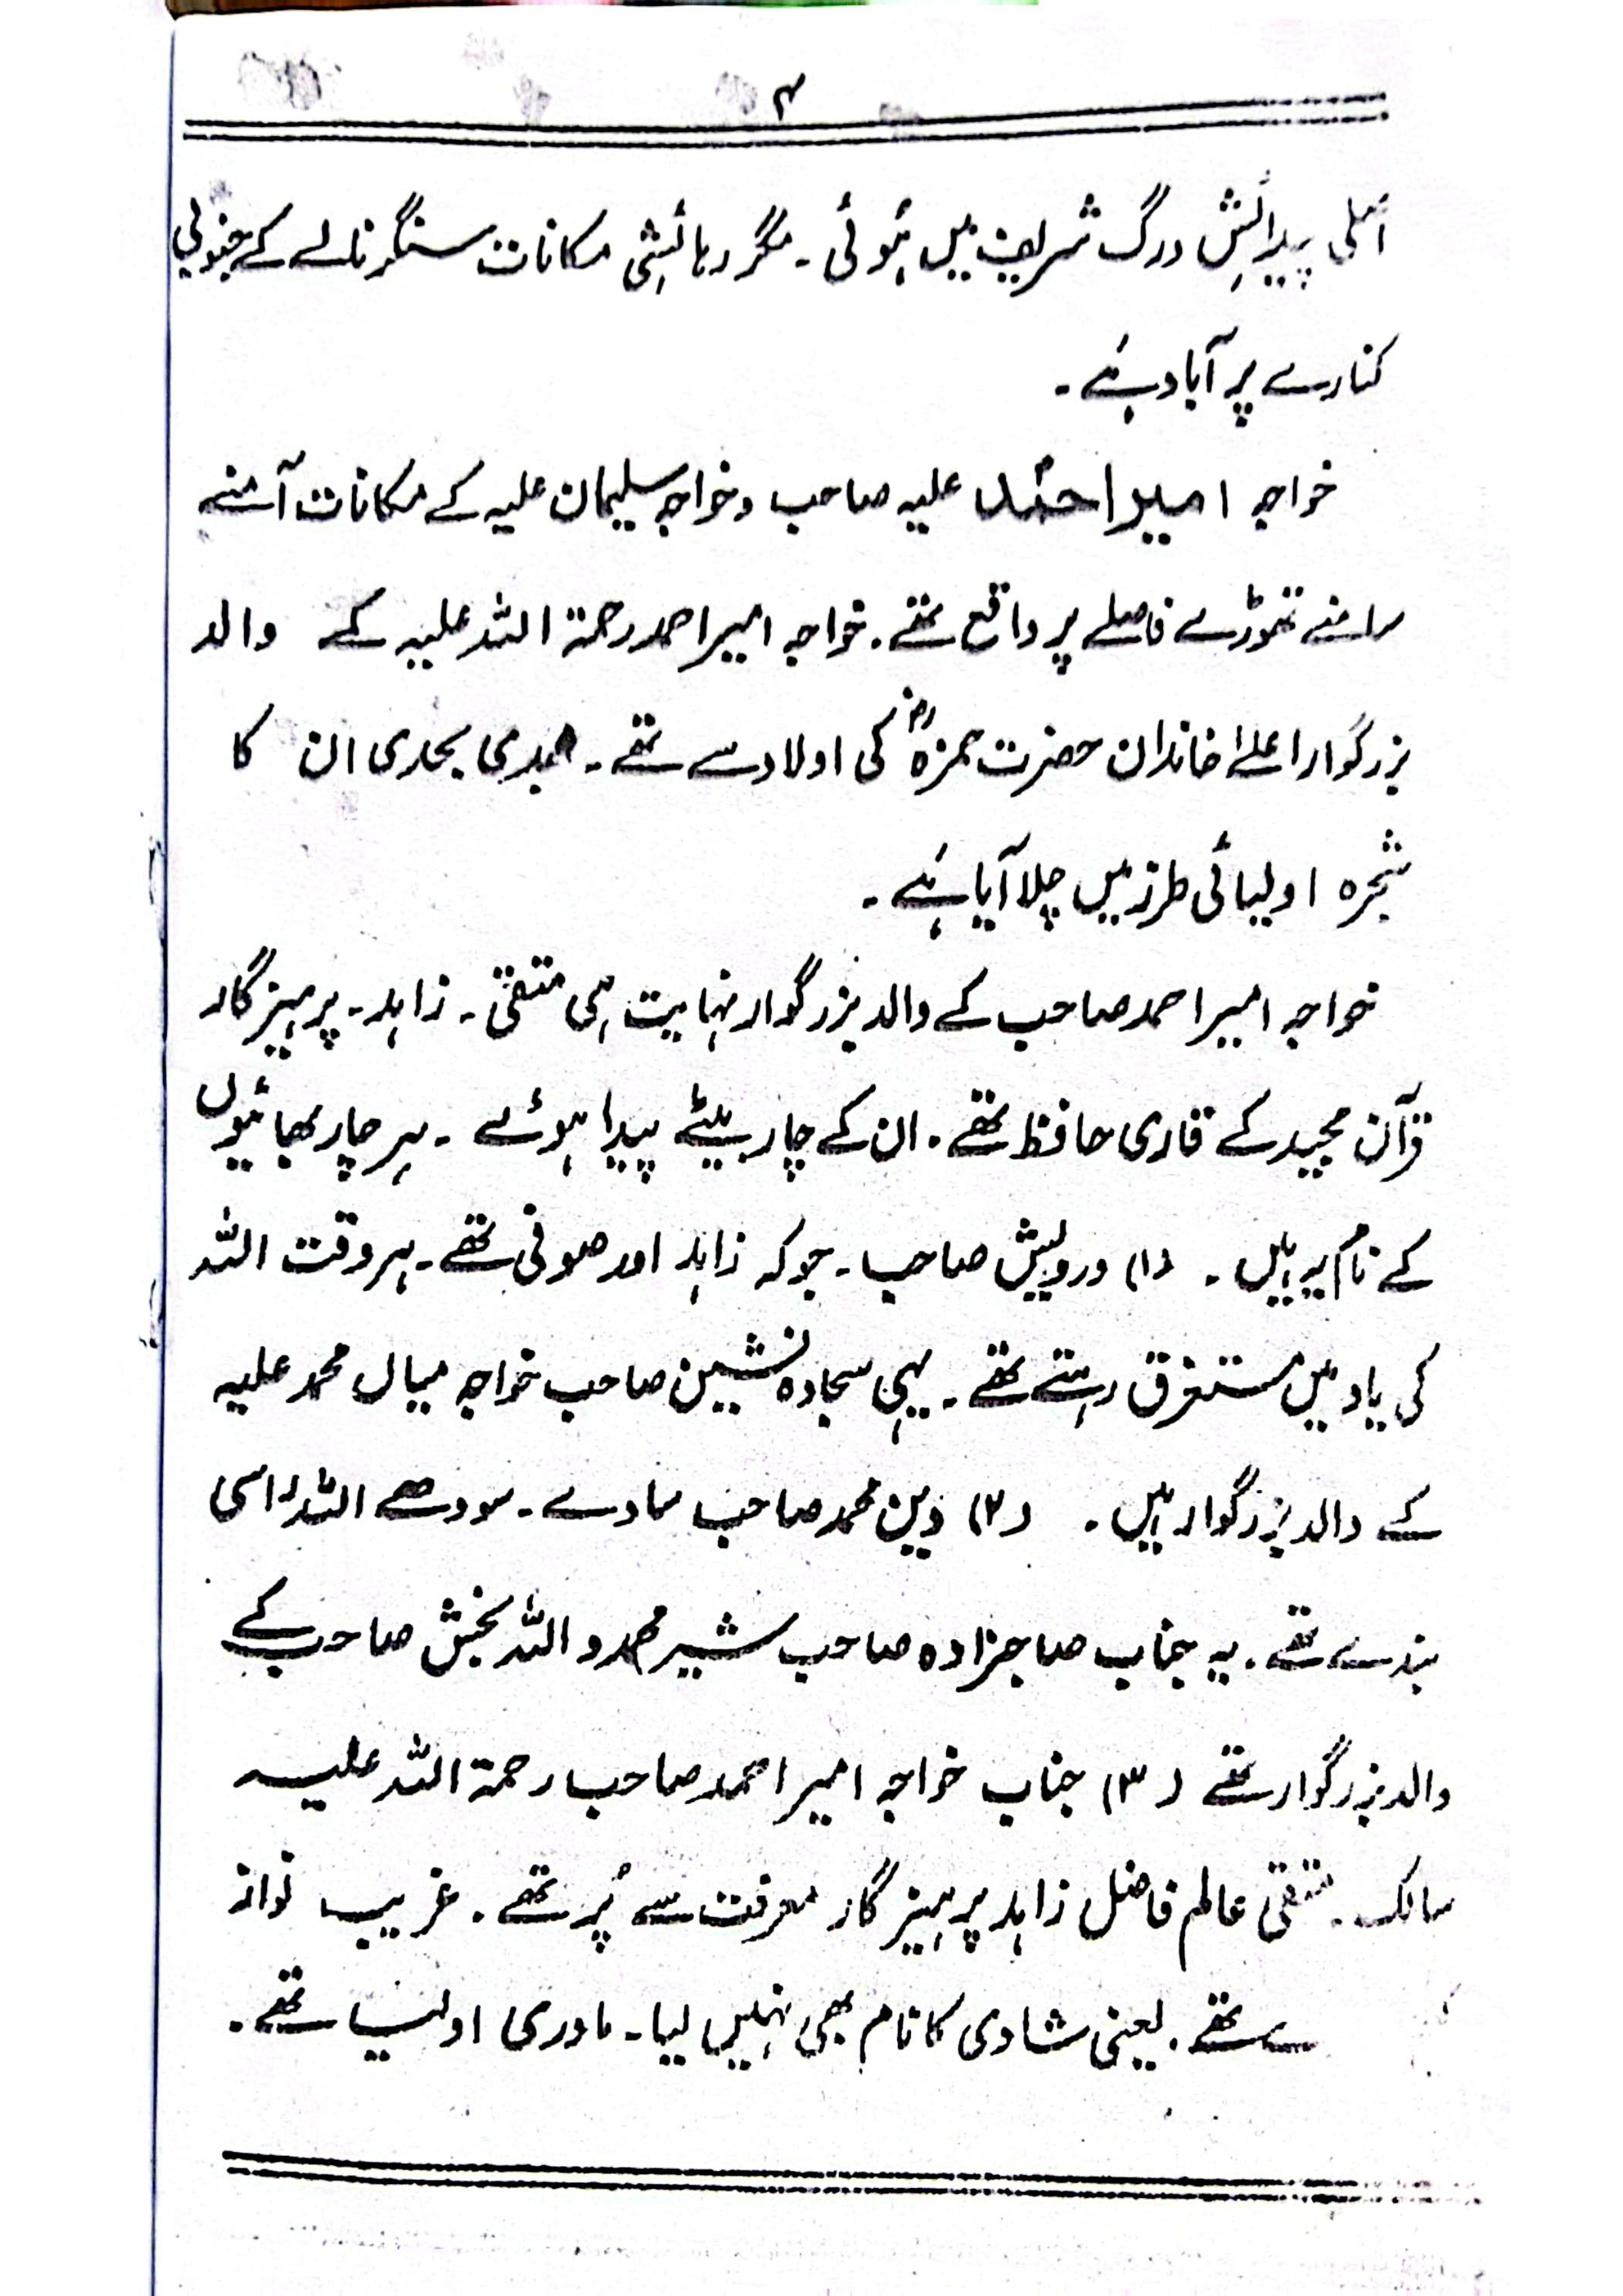 ۴
اُنکی پیدائش درگ شریف میں ہُوئی ۔ مگر رہائشی مکانات سنگر نالے کے جنوبی
کنارے پر آباد ہَے ۔
خواجہ امیر احمد علیہ صاحب و خواجہ سلیمان علیہ کے مکانات آمنے
سامنے تھوڑے فاصلے پر واقع تھے ۔ خواجہ امیر احمد رحمۃ اللہ علیہ کے والد
بزرگوار اعلےٰ خاندان حضرت حمزہؓ کی اولاد سے تھے ۔ جدی ان کا
شجرہ اولیائی طرز میں چلا آیا ہَے ۔
خواجہ امیر احمد صاحب کے والد بزرگوار نہایت ہی متقی ۔ زاہد ۔ پرہیزگار
قرآن مجید کے قاری حافظ تھے ۔ ان کے چار بیٹے پیدا ہوئے ۔ ہر چار بھائیوں
کے نام یہ ہیں ۔ (۱) درویش صاحب ۔ جوکہ زاہد اور صوفی تھے ۔ ہر وقت اللہ
کی یاد میں مستغرق رہتے تھے ۔ یہی سجادہ نشین صاحب خواجہ میاں محمد علیہ
کے والد بزرگوار ہیں ۔ (۲) دین محمد صاحب سادے ۔ سودھے اللہ راسی
بندے تھے ۔ یہ جناب صاحبزادہ صاحب شیر محمد و اللہ بخش صاحب کے
والد بزرگوار تھے (۳) جناب خواجہ امیر احمد صاحب رحمۃ اللہ علیہ
سالک ۔ متقی عالم فاضل زاہد پرہیزگار معرفت سے پُر تھے ۔ غریب نواز
تھے ۔ یعنی شادی کا نام بھی نہیں لیا ۔ مادری اولیا تھے ۔